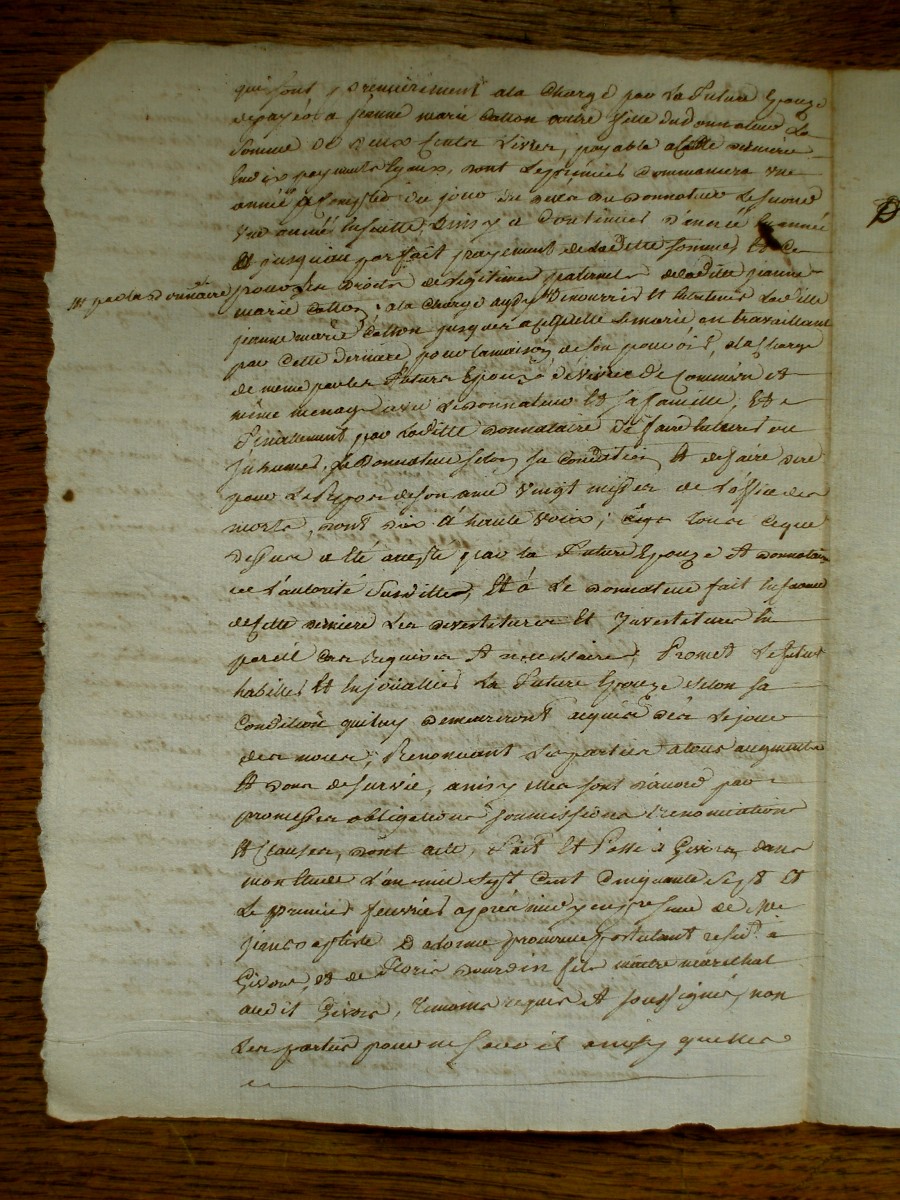 qui sont premierement a la charge par la Future Epouze
de payer a jeanne marie Catton autre fille du donnateur La
somme de deux Centes Livres, payable a Cette derniere
en dix payments Egaux, dont le premier Commancera une
année a Compter du jour du deces du donnateur Le second
une année ensuitte, Ainsy a Continuer d'année En année
Et jusqu'au parfait payement de la ditte somme Et ce
pour les droits de Legitimes paternels de laditte jeanne
par la donnataire
marie Catton, a la Charge aussy de nourrir Et Entretenir Laditte
jeanne marie Catton jusques a ce qu'elle se marie en travaillant
par Cette derniere pour la maison de son pouvoir, a la Charge
de meme par les Futurs Epoux de vivre de Commun et
même menage avec le donnateur Et sa famille, Et
Finalement par Laditte donnataire de faire Enterrer ou
inhumer Le Donnateur selon sa Condition Et de faire dire
pour Le Repos de son ame vingt messes de l'office des
morts, dont dix a haute voix; tout ce que
dessus a Eté accepté par la Future Epouze Et donnataire
de l'autorité susditte, Et a Le donnateur fait En faveur
de Cette derniere Les devestitures Et Investitures En
pareil Cas requises Et necessaires; Promet Le futur
habiller Et Enjoüallier La Future Epouze selon sa
Condition qui luy demeureront acquis dès Le jour
des noces; Renonçant Les parties a tous augments
Et dons de survie, ainsy Elles sont d'accord par
promesses obligations soumissions renonciations
Et Clauses, dont acte, Fait Et Passé à Givors dans
mon Etude L'an mil sept Cent Cinquante sept Et
Le premier fevrier après midy en presence de Me
jean baptiste Dadonne procureur postulant resid.t à
Givors, et de Floris Dourdin fils maitre maréchal
audit Givors, temoins requis Et soussignés, non
Les parties pour ne sçavoir ainsy qu'elles